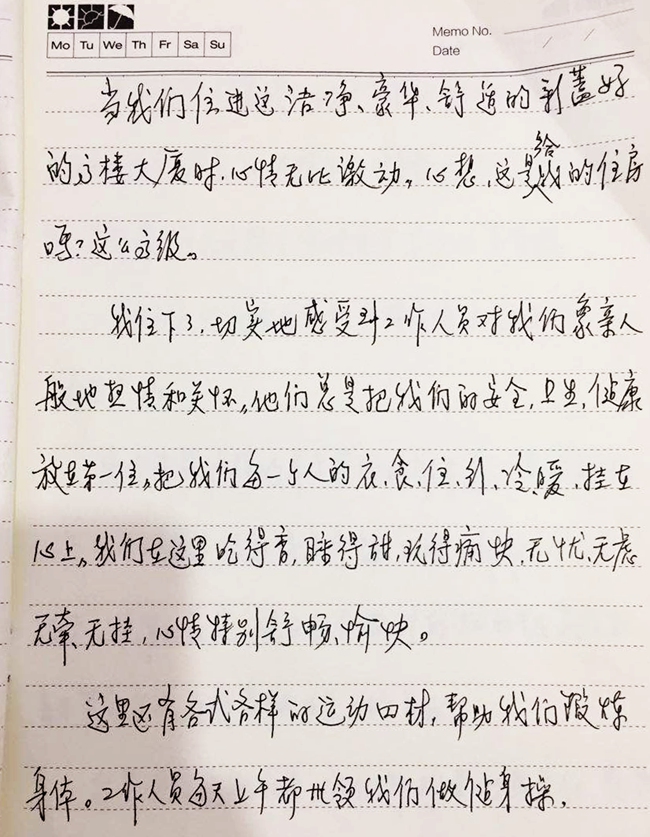 Memo No.
Mo Tu We Th Fr Sa Su
Date
当我们住进这洁净、豪华、舒适的新盖好
的高楼大厦时，心情无比激动。心想，这是给我的住房
吗？这么高级。
我住下了，切实地感受到工作人员对我们象亲人
般地热情和关怀，他们总是把我们的安全，卫生，健康
放在第一位，把我们每一个人的衣、食、住、行、冷、暖、挂在
心上，我们在这里吃得香，睡得甜，玩得痛快，无忧、无虑
无牵、无挂，心情特别舒畅、愉快。
这里还有各式各样的运动四材，帮助我们锻炼
身体。工作人员每天上午都带领我们做健身操，